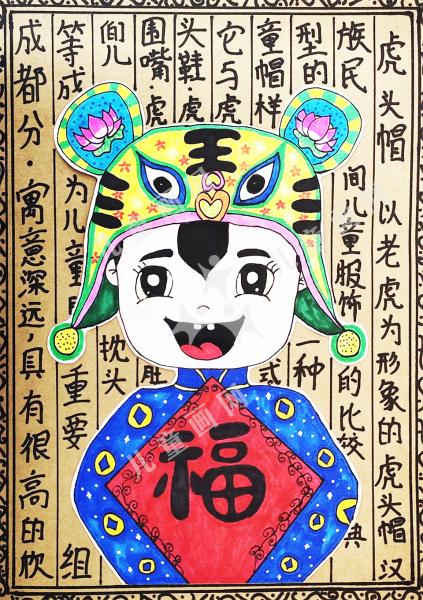 虎头帽 以老虎为形象的虎头帽 汉
族民 间儿童服饰的比较 典
型的 一种
童帽样 式
它与虎
头鞋·虎
围嘴·虎 肚
兜儿 枕头
等成 为儿童 重要 组
成部分·寓意深远,具有很高的欣
王
福
儿童画